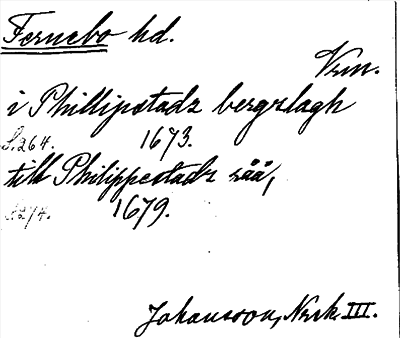 Fernebo hd.
Vrm.
i Phillipstadz bergzlagh
S. 264. 1673.
till Philippestadz råå,
S. 274. 1679.
Johansson, Nork. III.